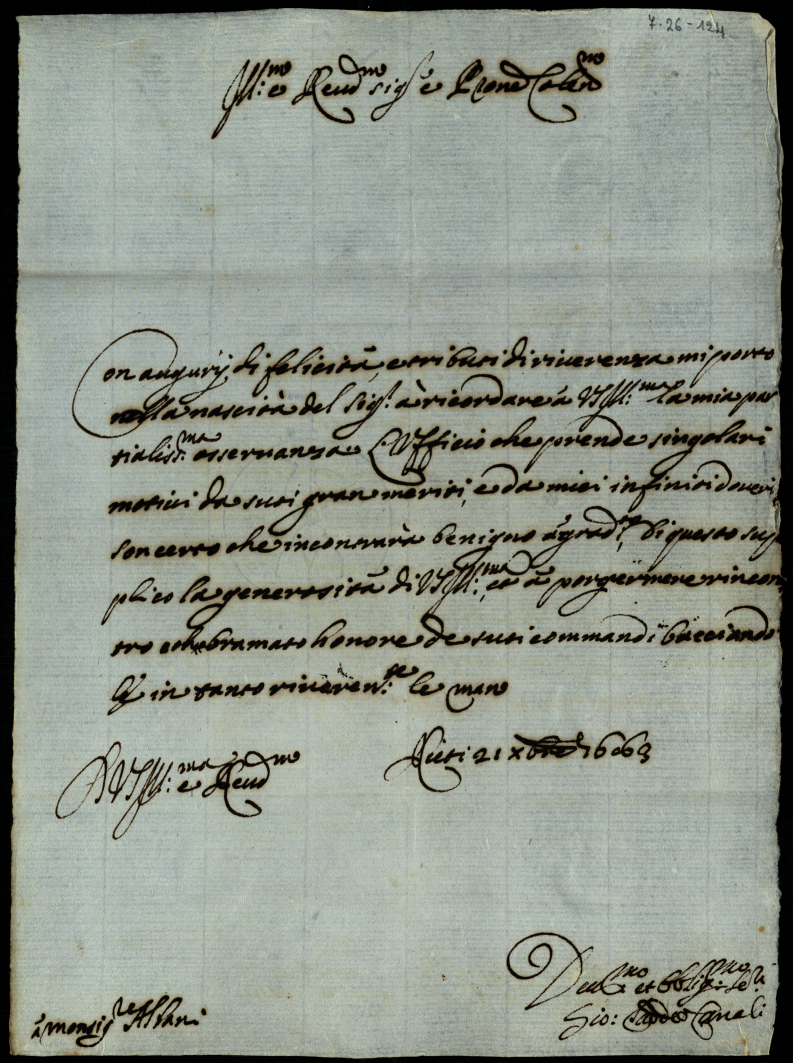 7-26-124
Ill:mo e Reud.mo Sig.r e Pron Colen.mo
Con augurij di felicità, e tributi di riuerenza mi porto
nella nascità del Sig.r à ricordare à VS Ill:ma la mia par
tialiss:ma osseruanza L'Vfficio che prende singolari
motiui da suoi gran meriti, e da miei infiniti doueri,
son certo che incontrarà benigno aggrad.to Di questo sup
plico la generosità di VS Ill:ma, et à porgermene rincon
tro col bramato honore de suoi commandi bacciando
le in tanto riueren:te le mano
D VS Ill:ma e Reud.ma
Rieti 21 Xbre 1663
Deu.mo et obblig.mo Se.r
Gio: Canali
à monsig.re Albani